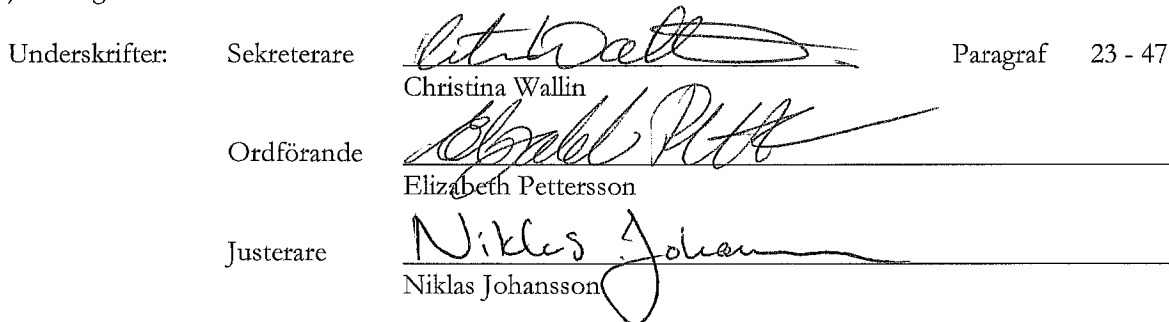 Underskrifter: Sekreterare Paragraf 23 - 47
Christina Wallin
Ordförande
Elizabeth Pettersson
Justerare Niklas Johansson
Niklas Johansson